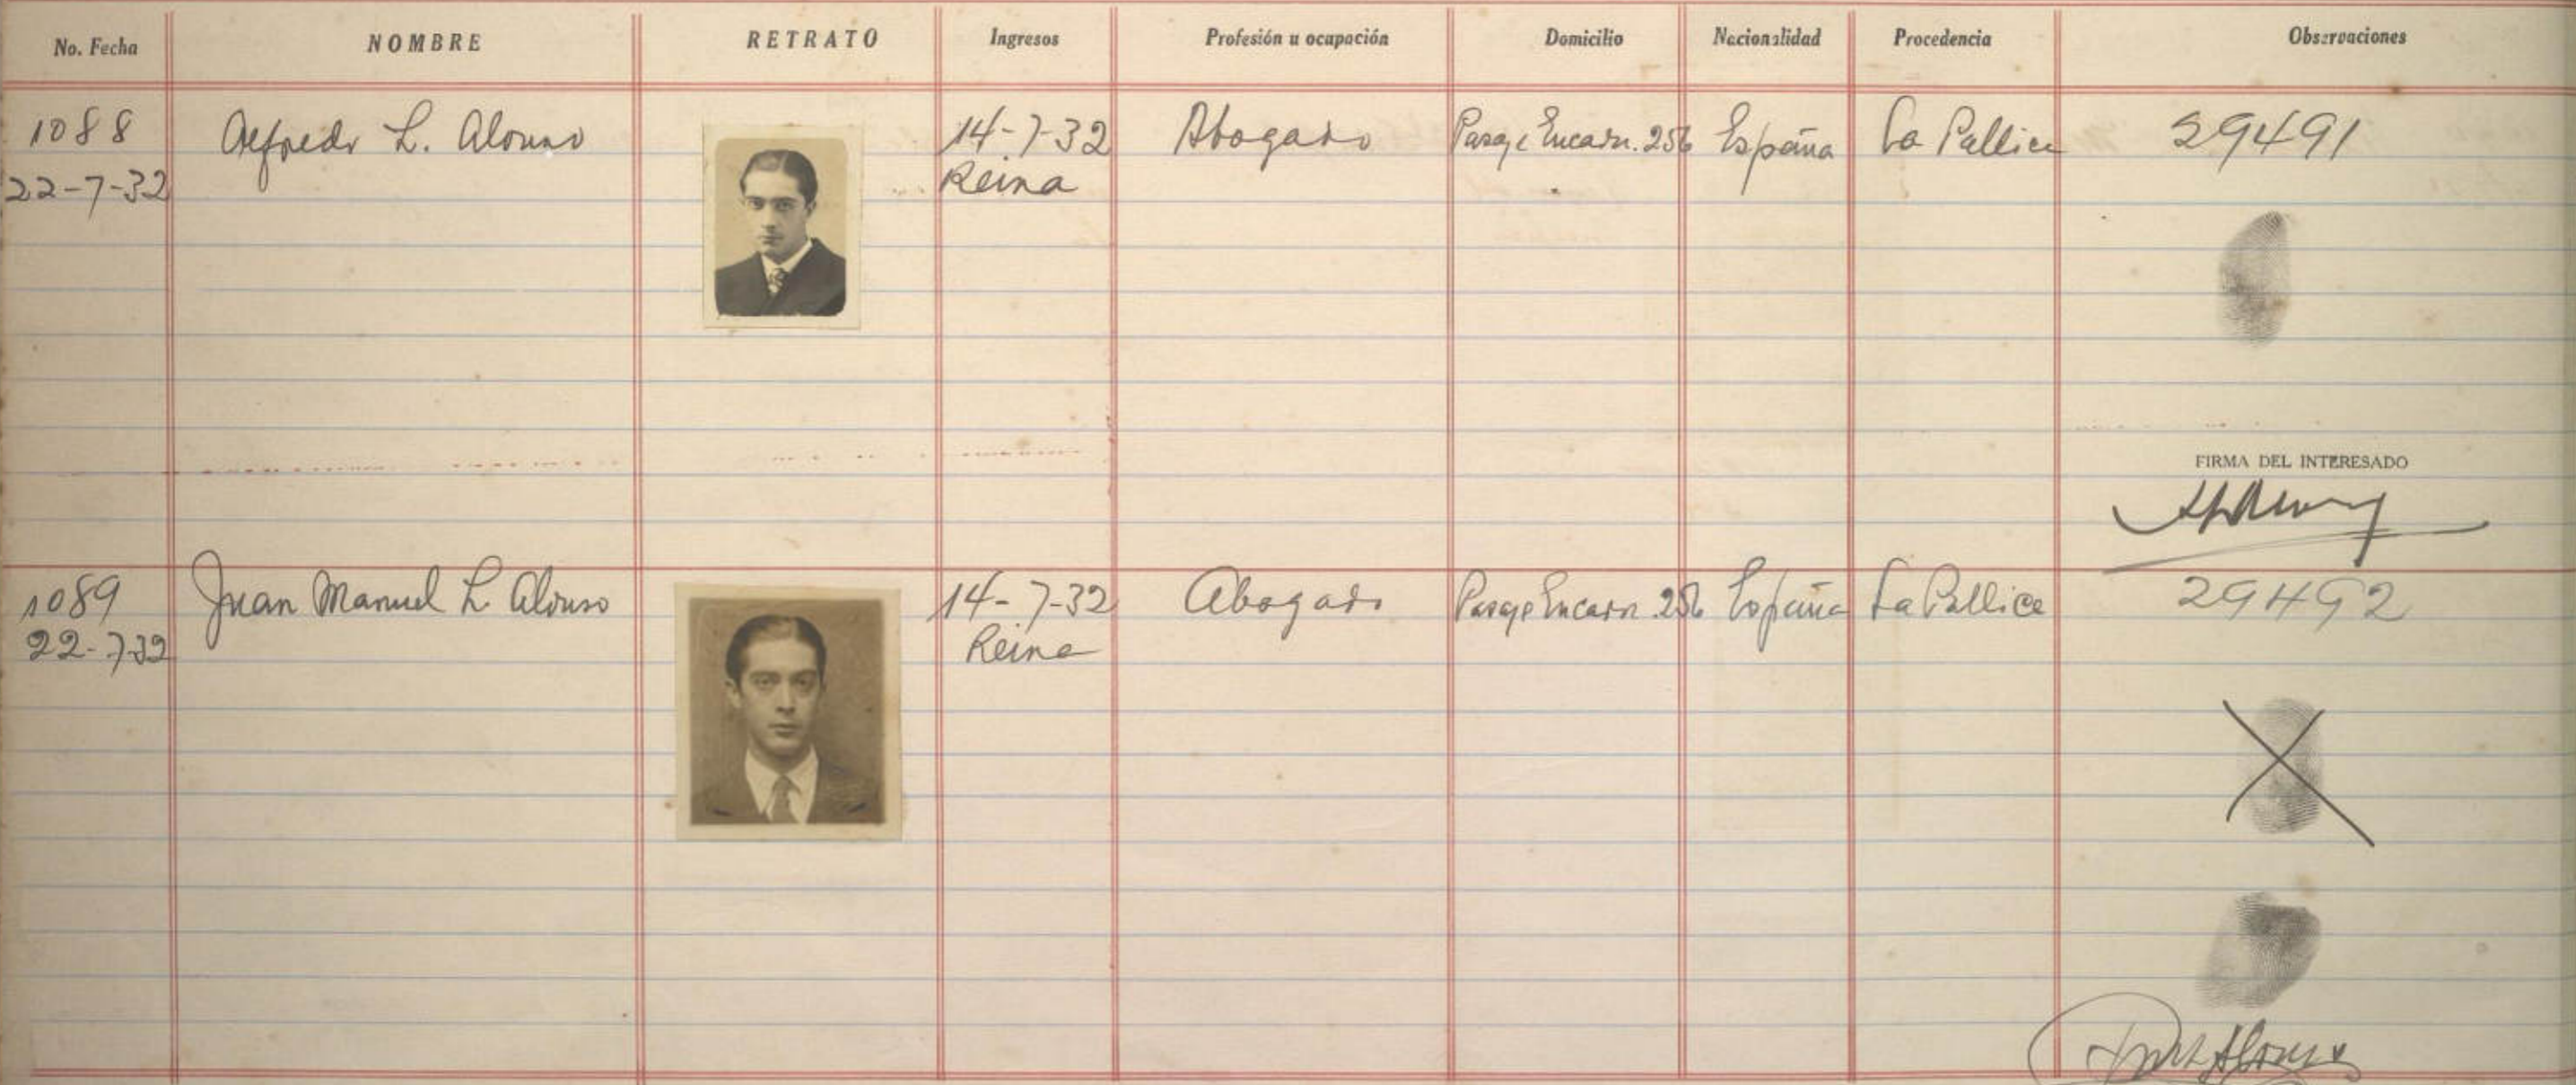 No. Fecha NOMBRE RETRATO Ingresos Profesión u ocupación Domicilio Nacionalidad Procedencia Observaciones
1088 Alfredo L. Alonso 14-7-32 Abogado Pasaje Encarn. 256 España La Pallice 29491
22-7-32 Reina
FIRMA DEL INTERESADO
1089 Juan Manuel L. Alonso 14-7-32 Abogado Pasaje Encarn. 256 España La Pallice 29492
22-7-32 Reina
Alonso